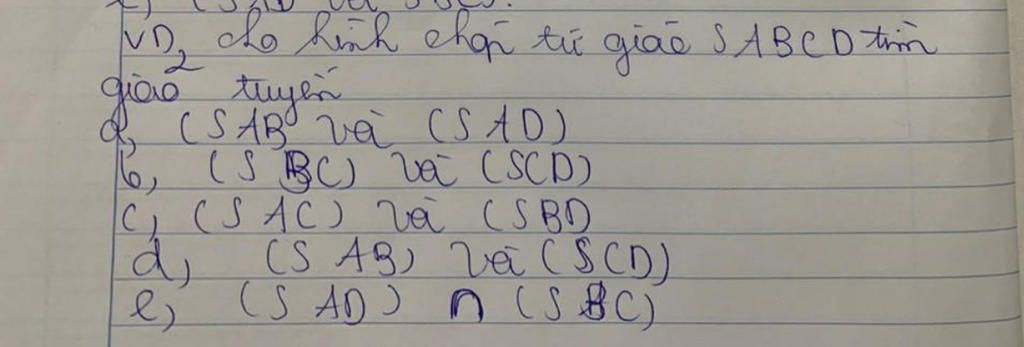 VD2 cho hình chóp tứ giác SABCD tìm
giao tuyến
a, (SAB và (SAD)
b, (SBC) và (SCD)
c, (SAC) và (SBD
d, (SAB) và (SCD)
e, (SAD) ∩ (SBC)